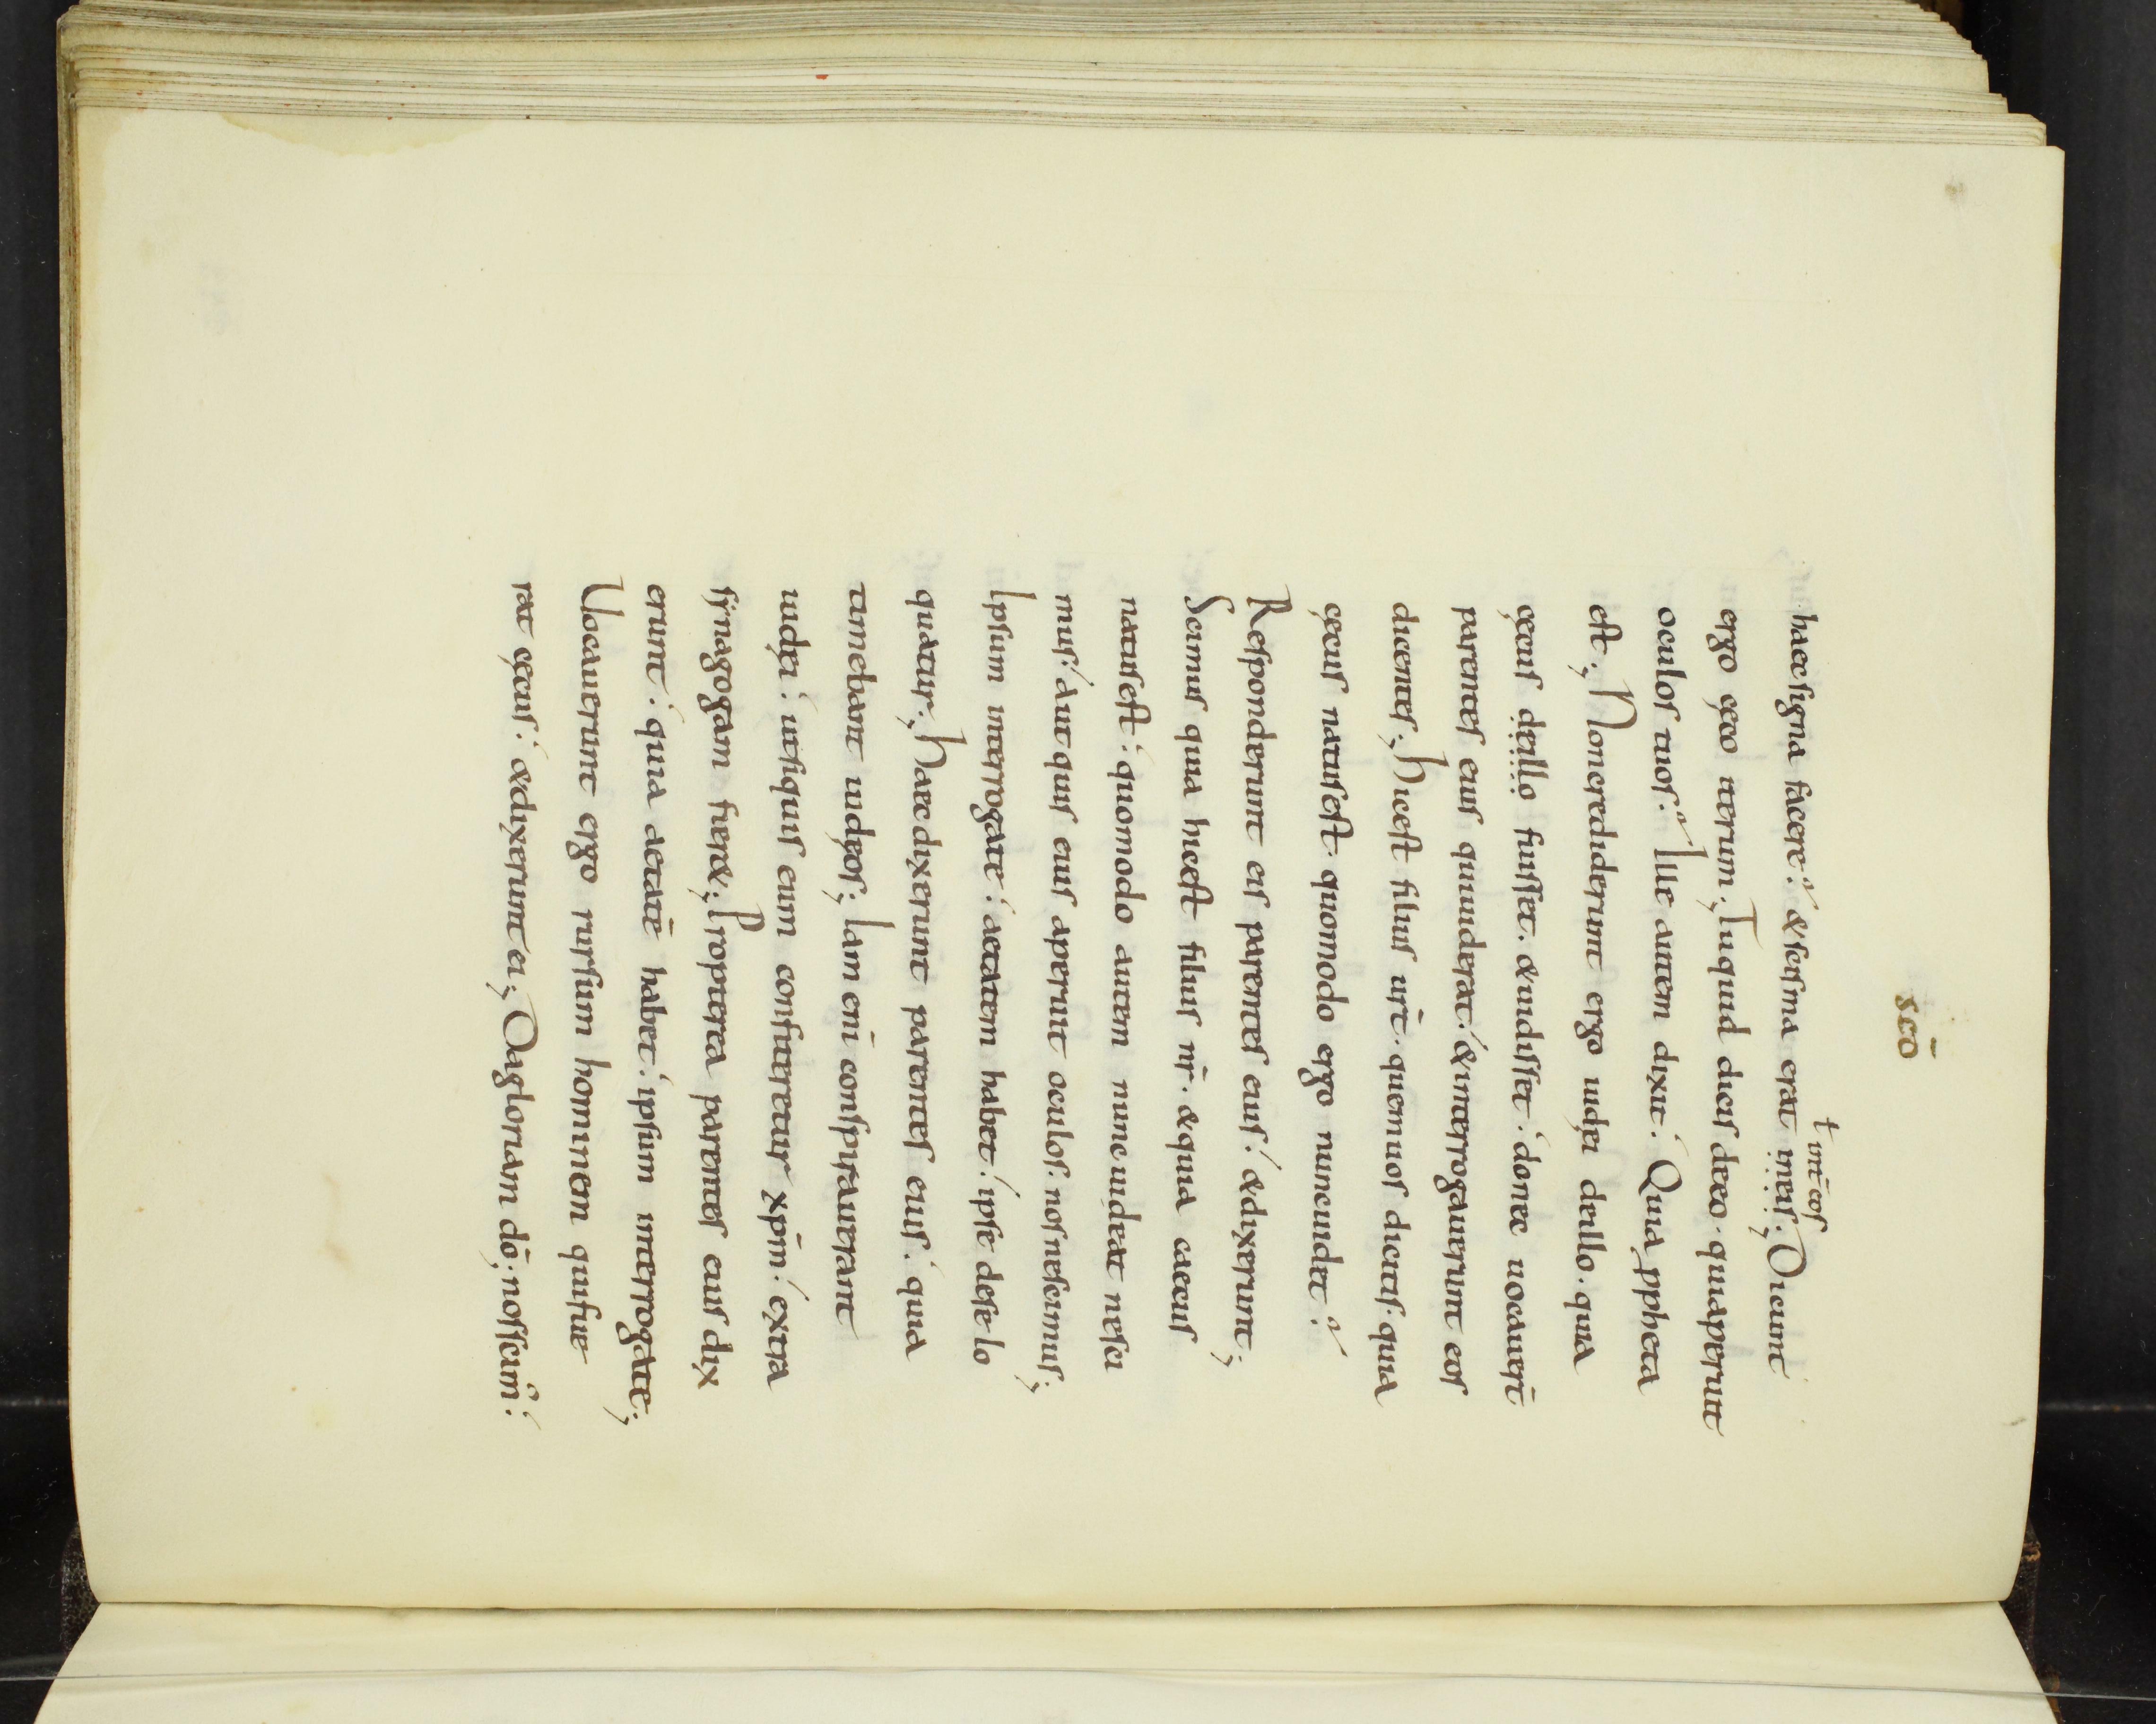 scō
ł int̄ eos
haecsigna facere? &scisma erat ineis; Dicunt
ergo cęco iterum; Tuquid dicis deeo. quiaperuit
oculos tuos? Ille autem dixit. Quia ppheta
est; Noncrediderunt ergo iudęi deillo. quia
cęcus deillo fuisset. &uidisset. donec uocauer̄t
parentes eius quiuiderat. &interrogauerunt eos
dicentes; Hicest filius ur̄t. quemuos dicitis. quia
cęcus natusest. quomodo ergo nuncuidet?
Responderunt eis parentes eius. &dixerunt;
Scimus quia hicest filius nr̄. &quia caecus
natusest. quomodo autem nunc uideat nesci
mus. aut quis eius aperuit oculos. nos nescimus;
Ipsum interrogate. aetatem habet. ipse dese lo
quatur; Haecdixerunt parentes eius. quia
timebant iudęos; Iam eni̅ conspirauerant
iudęi. utsiquis eum confiteretur xpm̄. extra
synagogam fieret; Propterea parentes eius dix
erunt. quia aetatē habet. ipsum interrogate;
Uocauerunt ergo rursum hominem quifue
rat cęcus. &dixerunt ei; Dagloriam dō; nosscim̄.